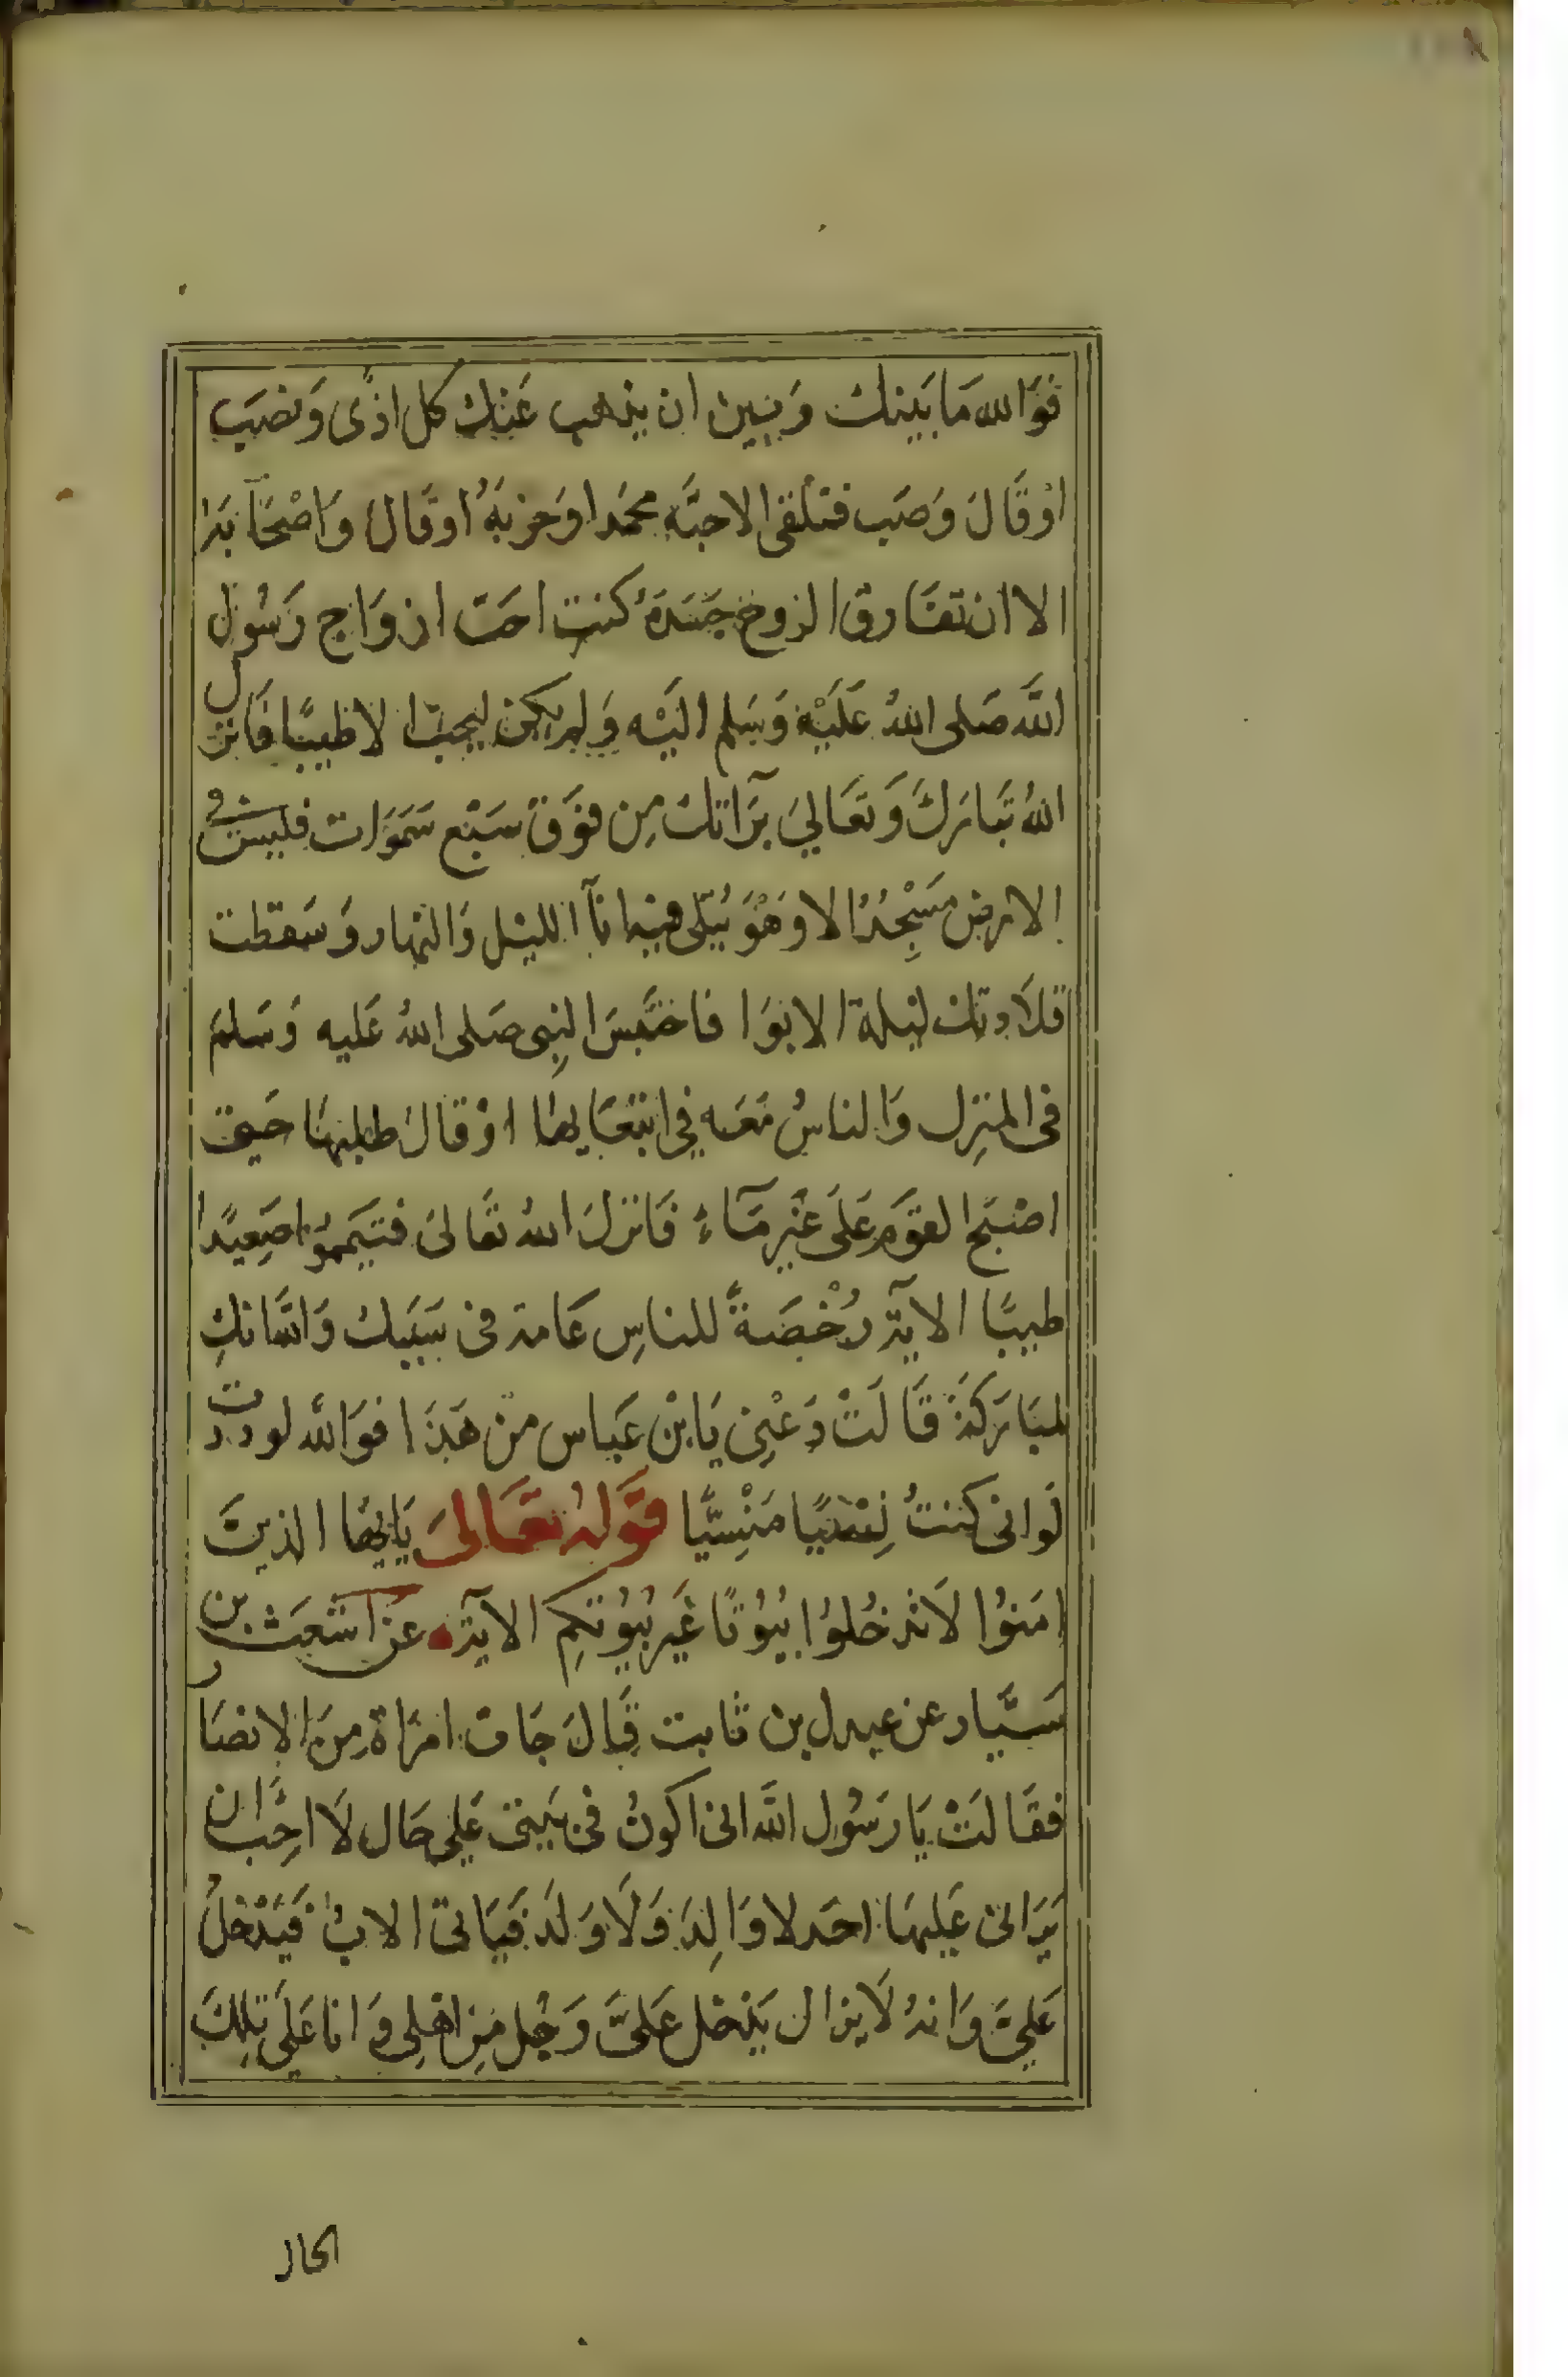 فَوَالله مَا بَينك وَبين ان يذهب عَنك كل اذًى وَنصَب
اوْقَالَ وَصَب فتلقى الاحبَّه محمَدا وَحزبَهُ اوقَال وَاصْحَابَه
الا ان تفَارق الروح جَسَدَهُ كنت احَبّ ازوَاج رَسُول
اللَّه صَلى اللهُ عَلَيْه وَسَلم اليَه وَلم يكن ليحبّ الا طيبًا فَانزل
اللهُ تَبَارَكَ وَتعَالىَ برَآتك مِن فوَق سَبْع سَمَوَات فليسَ في
الارض مَسْجِدُ الا وَهْوَ يُتلى فيه انآ الليْل وَالنهَار وَسَقطت
قلَادتك ليلة الابوَا فاحتَبسَ النبِى صَلى اللهُ عَليه وَسَلمَ
فى المنزِل وَالناسُ مَعَه فِي ابتغَايهَا اوْقالَ طلبهَا حَتى
اصْبَح القوَم عَلَى غَيْر مَآءٍ فَانزلَ اللهُ تعَالىَ فتيَممُوا صَعِيدًا
طيبًا الايَة رُخْصَةً للناسِ عَامة فى سَبَبك وَاللهَ انكِ
لمبَارَكَة قَالَتْ دَعْنِى يَا بْن عَباس منْ هَذَا فوَاللَّه لوددت
لَوانى كنتُ نِسْيًا مَنْسِيًّا قوَله تعَالىَ يَا يهَا الذينَ
امَنوُا لَا تدخُلوُا بيُوُتًا غَير بيُوُتكمِ الايَة عَن اشعَث بن
سَيَّار عن عدى بن ثابت قَالَ جَات امرَاة مِنَ الانصَار
فقَالَتْ يَا رَسُول اللَّه انى اكونُ فى بَيتى عَلى حَال لَا احِبُّ ان
يَرَانى عَليهَا احَد لا وَالِد وَلَا وَلَد فيَاتى الابُ فيَدْخلُ
عَليَّ وَانهُ لَا يزال يَدْخل عَلىَّ رَجُل مِن اهْلِى وَانا عَلَى تلِكَ
الحال